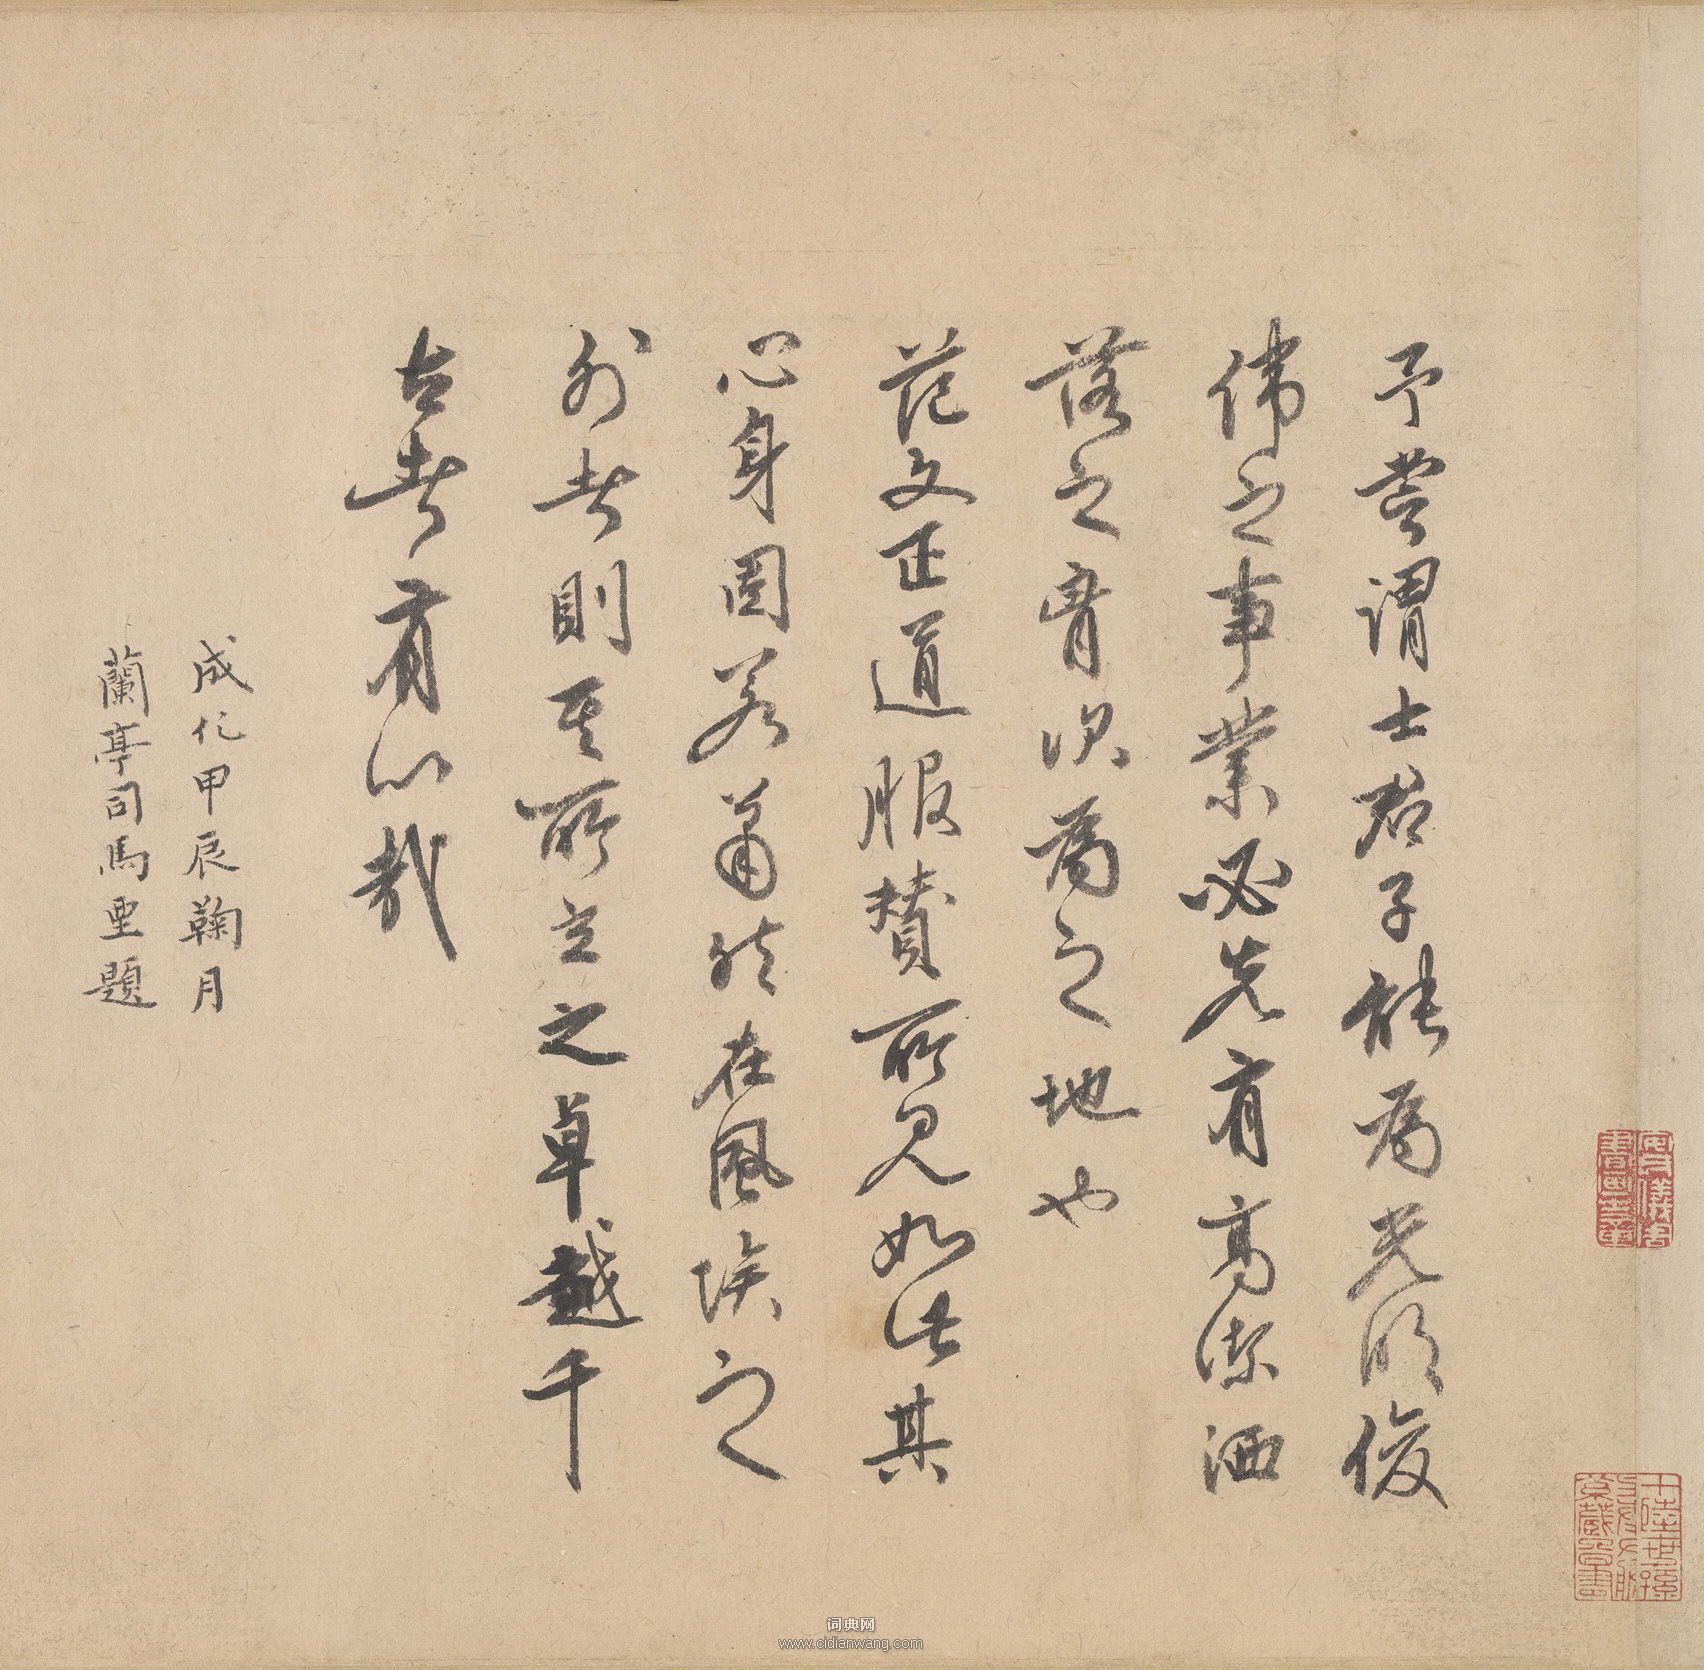 予嘗謂士君子能為光明俊
偉之事業必先有高潔洒
落之胷次為之地也
范文正道服贊所見如此其
心身固若蕭然在風埃之
外者則其所立之卓越千
古者有以哉
成化甲辰鞠月
蘭亭司馬垔題
詞典网
www.cidianwang.com